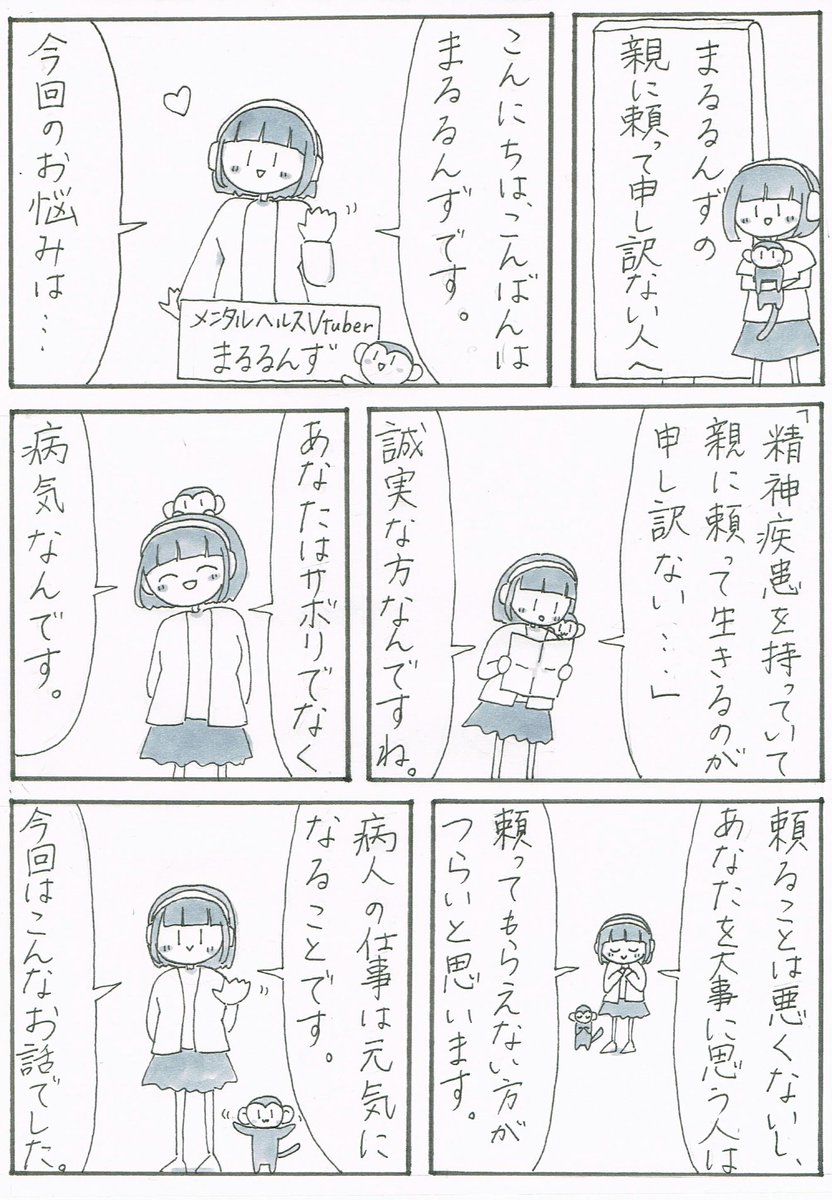 まるるんずの
親に頼って申し訳ない人へ
こんにちは、こんばんは
まるるんずです。
メンタルヘルスVtuber
まるるんず
今回のお悩みは…
「精神疾患を持っていて
親に頼って生きるのが
申し訳ない…。」
誠実な方なんですね。
あなたはサボりでなく
病気なんです。
頼ることは悪くないし、
あなたを大事に思う人は
頼ってもらえない方が
つらいと思います。
病人の仕事は元気に
なることです。
今回はこんなお話でした。